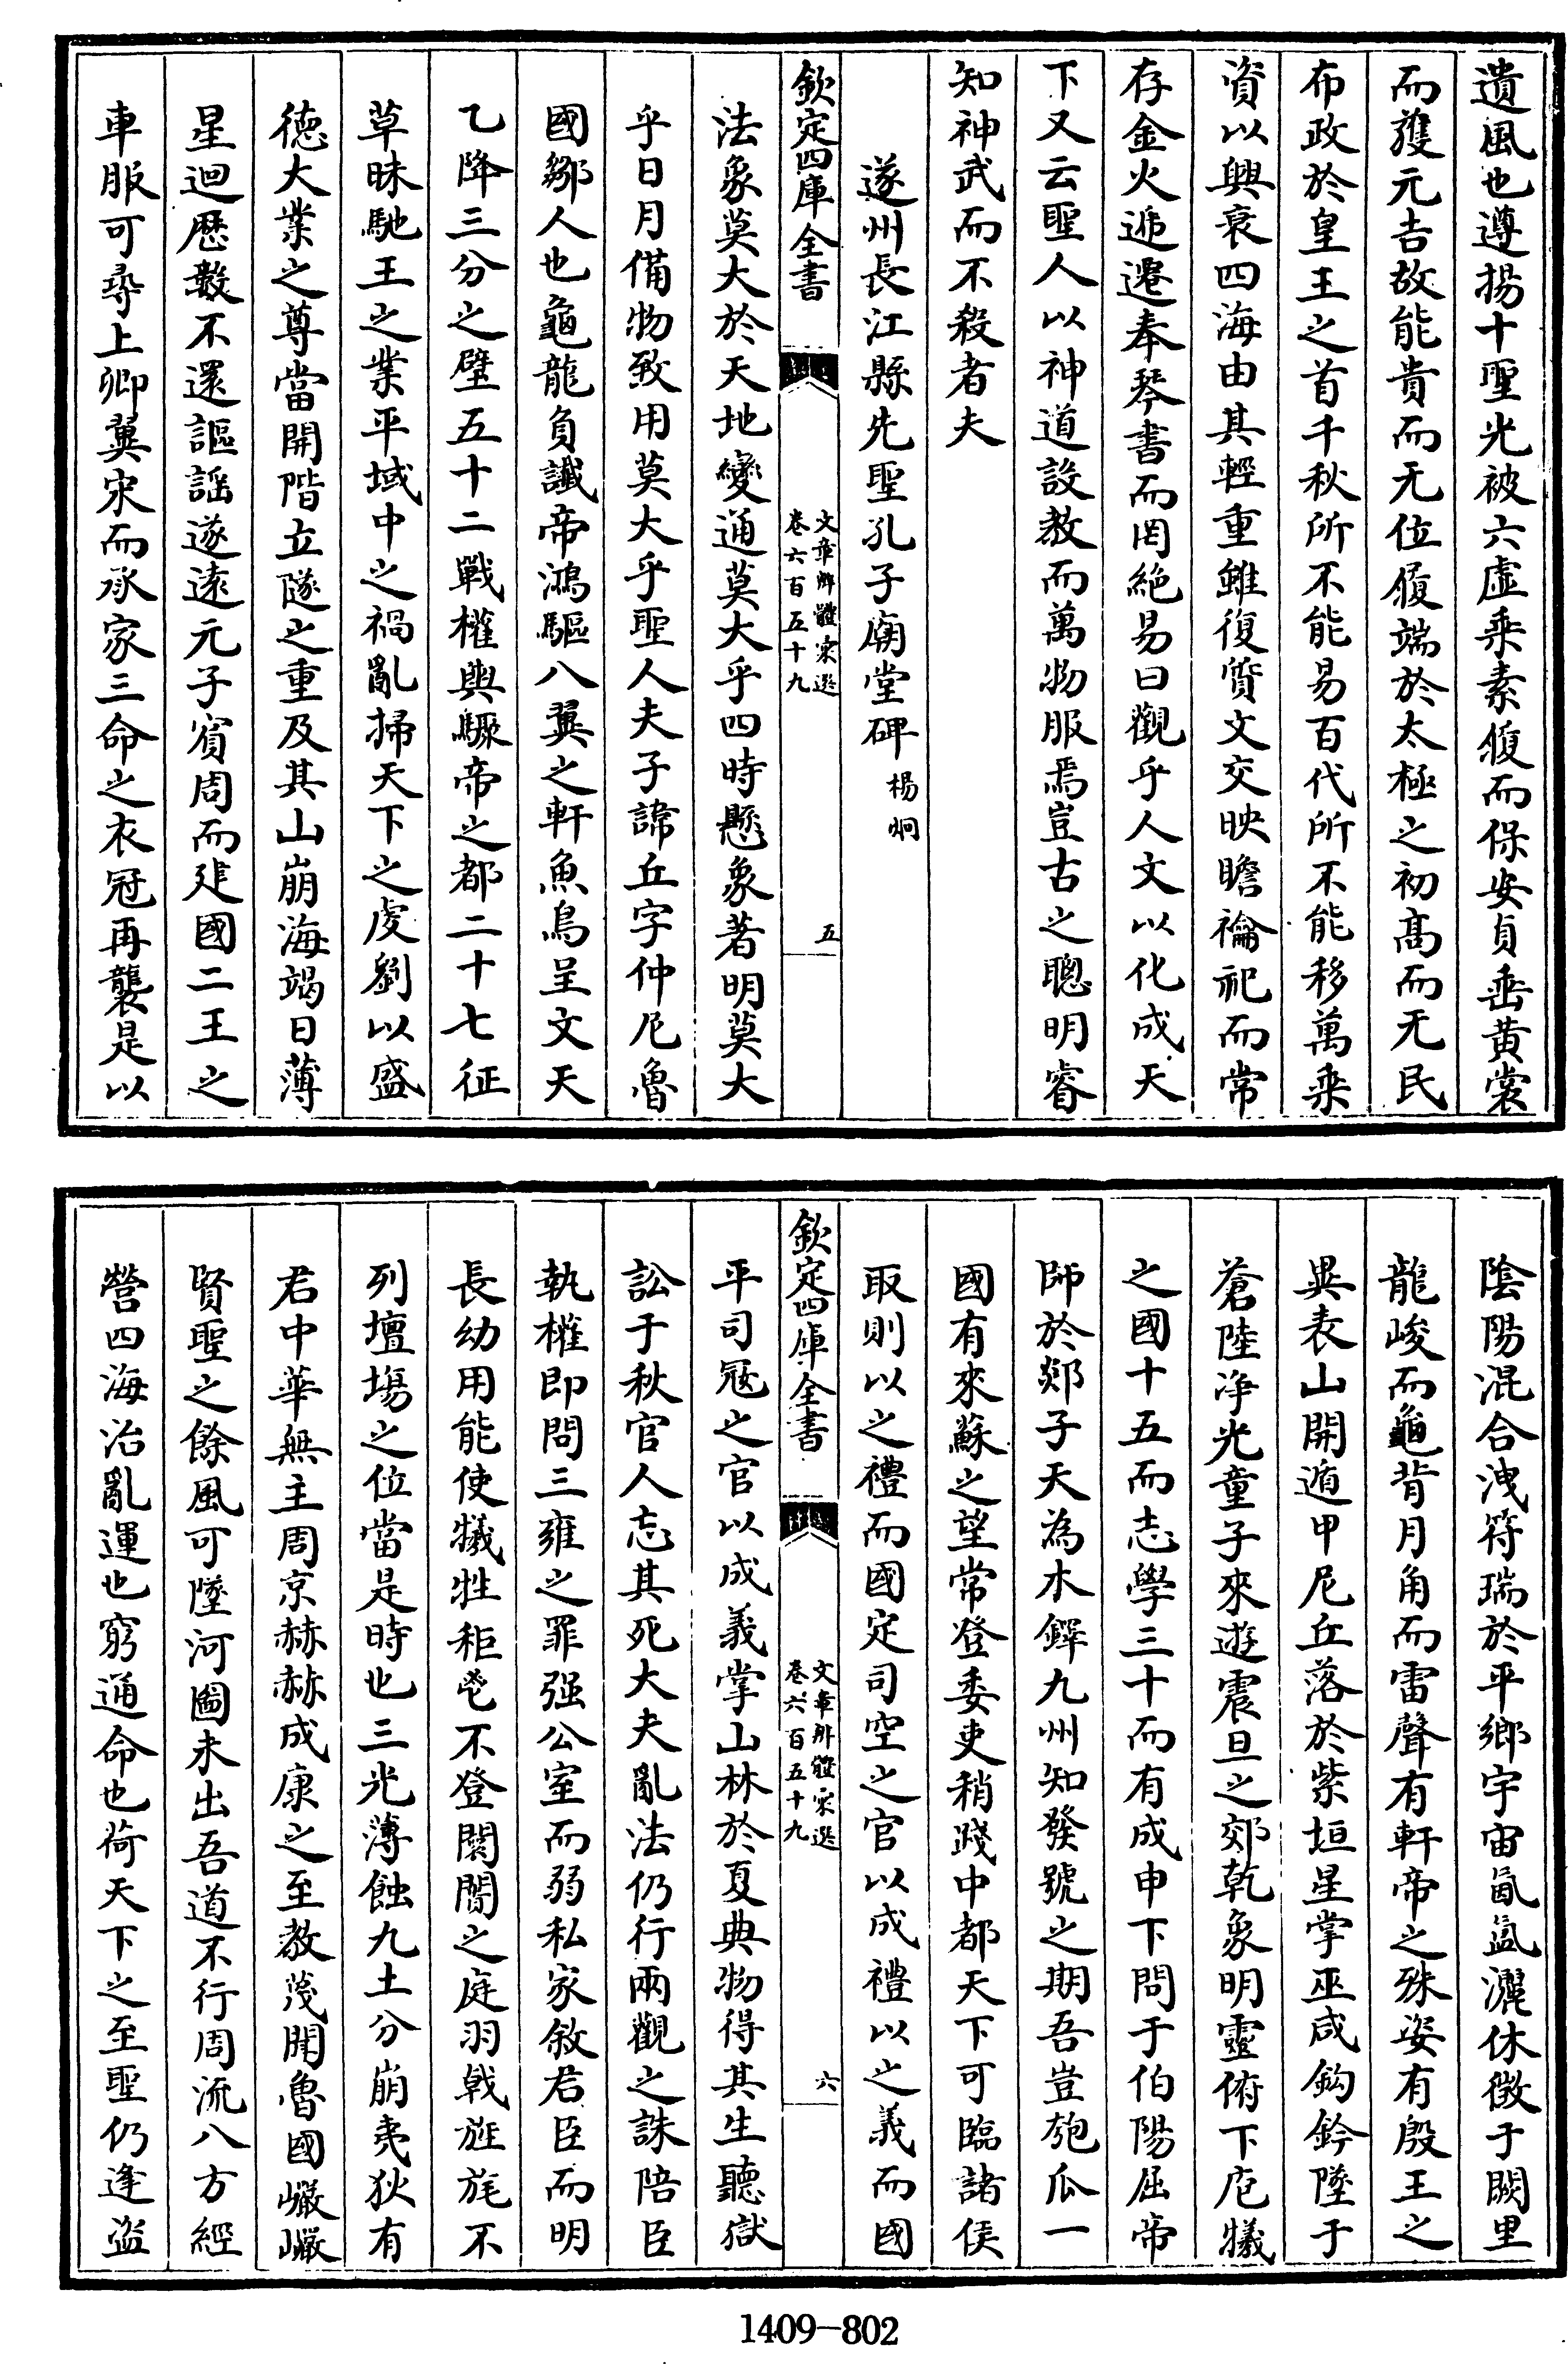 遺風也遵揚十聖光被六虛乘素履而保安貞垂黃裳
而獲元吉故能貴而无位履端於太極之初髙而无民
布政於皇王之首千秋所不能易百代所不能移萬乘
資以興衰四海由其輕重雖復質文交映瞻禴祀而常
存金火遞遷奉琴書而罔絶易曰觀乎人文以化成天
下又云聖人以神道設教而萬物服焉豈古之聰明睿
知神武而不殺者夫
遂州長江縣先聖孔子廟堂碑 楊炯
欽定四庫全書 文章辨體彚選 卷六百五十九 五
法象莫大於天地變通莫大乎四時懸象著明莫大
乎日月備物致用莫大乎聖人夫子諱丘字仲尼魯
國鄒人也龜龍負讖帝鴻驅八翼之軒魚鳥呈文天
乙降三分之璧五十二戰權輿驟帝之都二十七征
草昧馳王之業平域中之禍亂掃天下之虔劉以盛
徳大業之尊當開階立隧之重及其山崩海竭日薄
星迴歴數不還謳謡遂逺元子賓周而建國二王之
車服可尋上卿翼宋而承家三命之衣冠再襲是以
陰陽混合洩符瑞於平鄉宇宙氤氲灑休徴于闕里
龍峻而龜背月角而雷聲有軒帝之殊姿有殷王之
異表山開遁甲尼丘落於紫垣星掌巫咸鈎鈐墜于
蒼陸浄光童子來遊震旦之郊乾象明靈俯下庖犧
之國十五而志學三十而有成申下問于伯陽屈帝
師於郯子天為木鐸九州知發號之期吾豈匏瓜一
國有來蘇之望常登委吏稍踐中都天下可臨諸侯
取則以之禮而國定司空之官以成禮以之義而國
欽定四庫全書 文章辨體彚選 卷六百五十九 六
平司冦之官以成義掌山林於夏典物得其生聽獄
訟于秋官人忘其死大夫亂法仍行兩觀之誅陪臣
執權即問三雍之罪强公室而弱私家敘君臣而明
長幼用能使犧牲秬鬯不登闤闠之庭羽戟旌旄不
列壇塲之位當是時也三光薄蝕九土分崩夷狄有
君中華無主周京赫赫成康之至教蔑聞魯國巖巖
賢聖之餘風可墜河圖未出吾道不行周流八方經
營四海治亂運也窮通命也荷天下之至聖仍逢盜
1409-802